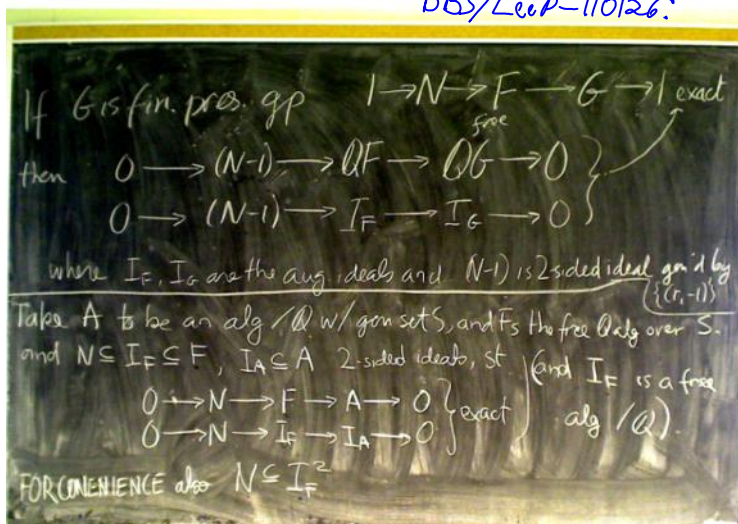 DBS/LeeP-110126:
If G is fin. pres. gp 1→N→F→G→1 exact
free
then 0→(N-1)→QF→QG→0
0→(N-1)→I_F→I_G→0
where I_F, I_G are the aug. ideals and (N-1) is 2-sided ideal gen'd by
{(r_i-1)}
Take A to be an alg/Q w/ gen set S, and F_S the free Q alg over S.
and N⊆I_F⊆F, I_A⊆A 2-sided ideals, st (and I_F is a free
0→N→F→A→0
exact alg/Q).
0→N→I_F→I_A→0
FOR CONENIENCE also N⊆I_F^2